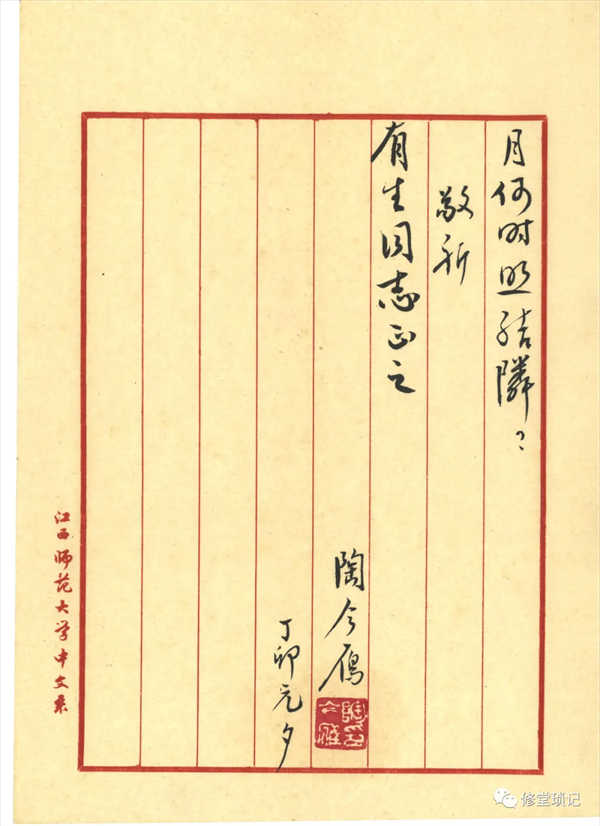 月何时照结隣？
敬祈
有生同志正之
陶今雁
陶印今雁
丁卯元夕
江西师范大学中文系
修堂琐记